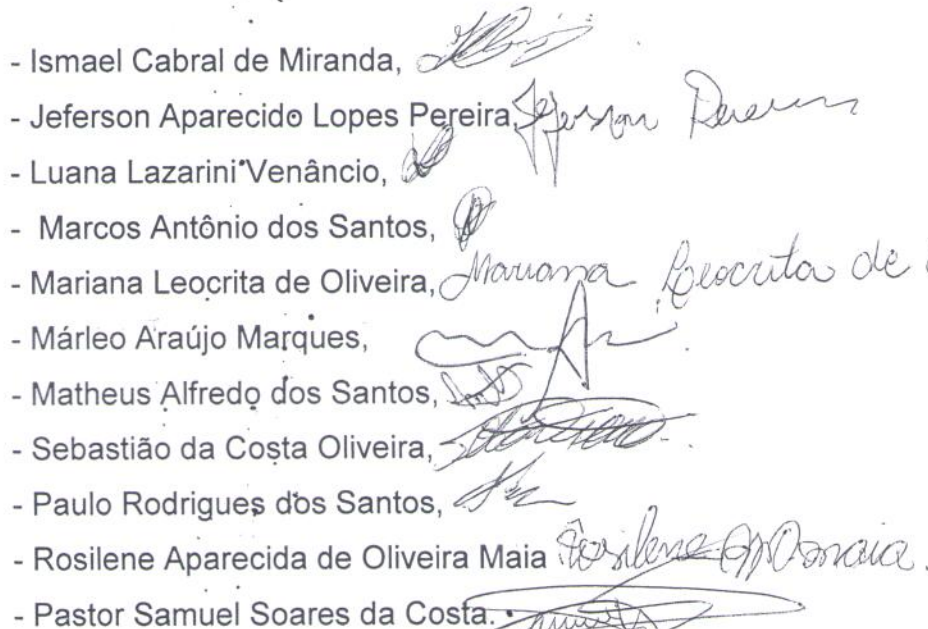 - Ismael Cabral de Miranda,
- Jeferson Aparecido Lopes Pereira, Jeferson Pereira
- Luana Lazarini Venâncio,
- Marcos Antônio dos Santos,
- Mariana Leocrita de Oliveira, Mariana Leocrita de
- Márleo Araújo Marques,
- Matheus Alfredo dos Santos,
- Sebastião da Costa Oliveira,
- Paulo Rodrigues dos Santos,
- Rosilene Aparecida de Oliveira Maia Rosilene Ap O maia.
- Pastor Samuel Soares da Costa.